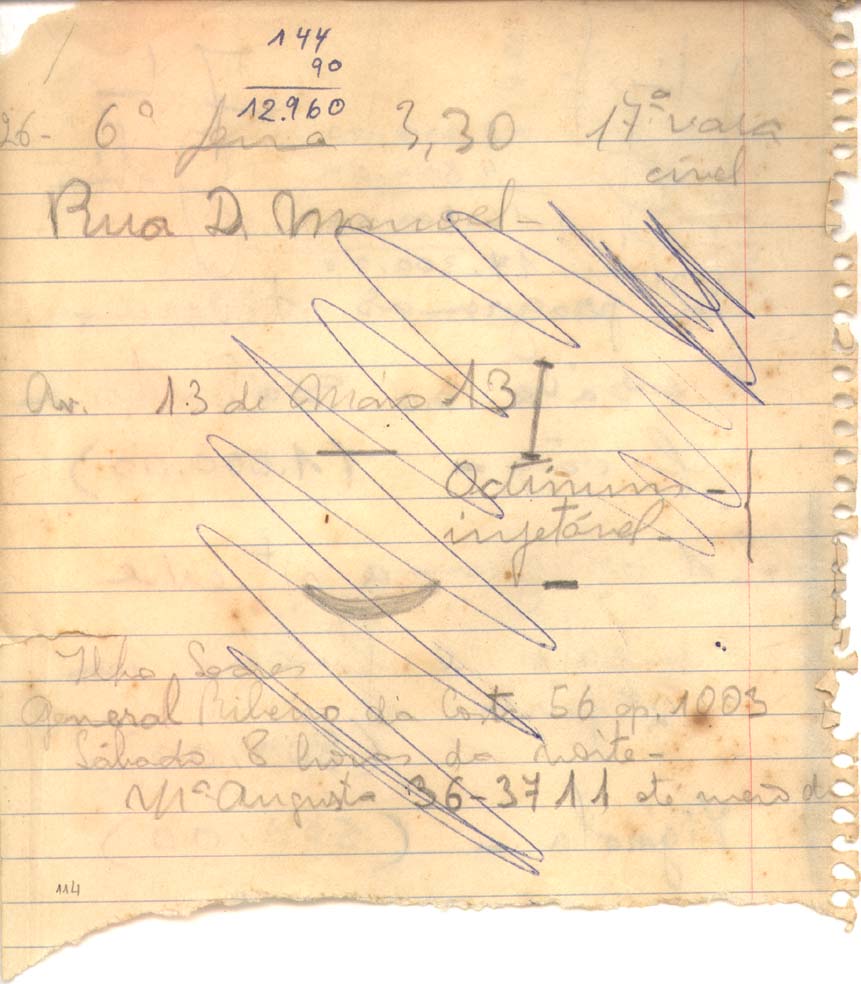 144
90
12.960
26- 6ª feira 3,30 17ª vara
civel
Rua D. Manuel-
Av. 13 de Maio 13
Octinum-
injetável-
Ilho Soares
General Ribeiro da Costa 56 ap. 1003
Sábado 8 horas da noite-
Mª Augusta 36-3711 até meio d
114